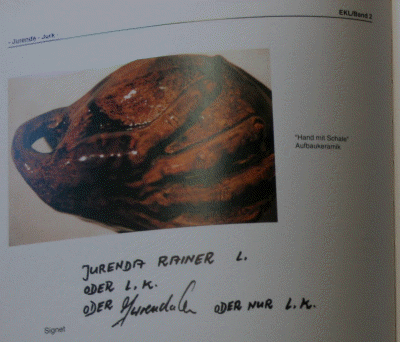 EKL/Band 2
- Jurende - Jurk
"Hand mit Schale"
Aufbaukeramik
JURENDA RAINER L.
ODER L.K.
ODER Jurenda ODER NUR L.K.
Signet